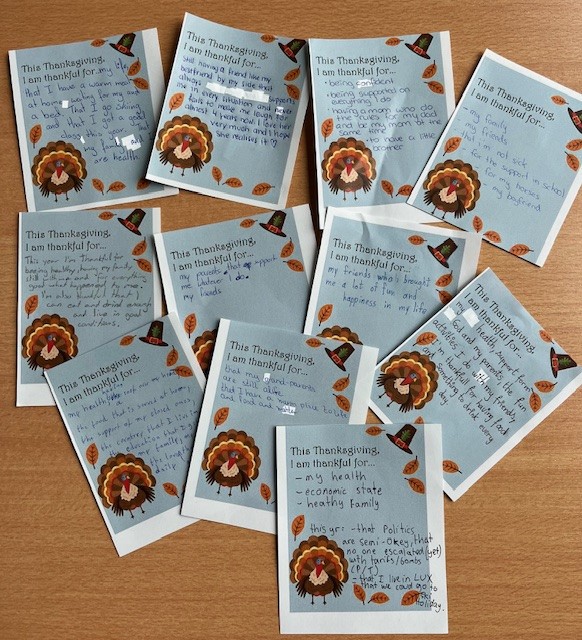 This Thanksgiving,
I am thankful for... my life,
that I have a warm meal
at home waiting for me and
a bed. That I go Skiing
and that I got a good
class this year and that
my family and
are health
This Thanksgiving,
I am thankful for...
Still having a friend like my
bestfriend by my side that
always support
me in every situation and never
fails to make me laugh for
almost 4 years now. I love her
very much and I hope
she realises it ♡
This Thanksgiving,
I am thankful for...
- being confident
- being supported on
everything I do
- having a mom who do
the trucks for my dad
and be my mom at the
same time
- to have a little
brother
This Thanksgiving,
I am thankful for...
- my family
- my friends
- that I'm not sick
- for the support in school
- for my horses
- my boyfriend
This Thanksgiving,
I am thankful for...
This year I'm thankful for
beeing healthy, having my family
still with me and everything
good what happened to me.
I'm also thankful that I
can eat and drink enough
and live in good
conditions.
This Thanksgiving,
I am thankful for...
my parents that support
me whatever I do.
my friends
This Thanksgiving,
I am thankful for...
my friends who brought
me a lot of fun and
happiness in my life
This Thanksgiving,
I am thankful for...
my health, support from
God and my parents, the fun
activities I do with my friends,
I'm thankfull for having food
and something to drink every
day
This Thanksgiving,
I am thankful for...
my health
the food that is served at home,
the support of my close ones,
the country that I live in
education that I
my family
daily
This Thanksgiving,
I am thankful for...
that my grand-parents
are still alive
that I have a place to life
and food and
This Thanksgiving,
I am thankful for...
- my health
- economic state
- heathy Family
this yr: - that Politics
are semi-Okey, that
no one escalated (yet)
with tarifs/bombs
(P/T)
- that I live in LUX
that we could go to
Ski
Holiday.